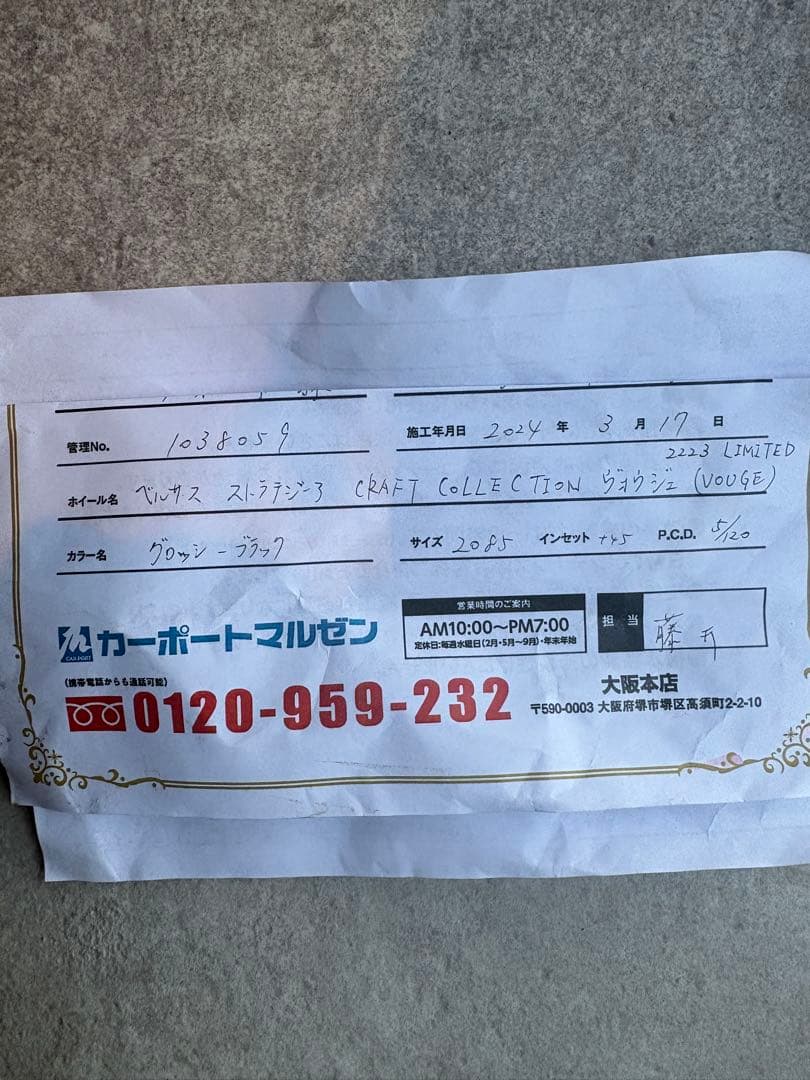 管理No. 1038059 施工年月日 2024 年 3 月 17 日
2223 LIMITED
ホイール名 ベルサス ストラテジーア CRAFT COLLECTION ヴォウジェ (VOUGE)
カラー名 グロッシーブラック サイズ 2085 インセット +45 P.C.D. 5/120
営業時間のご案内
AM10:00〜PM7:00
定休日:毎週水曜日(2月・5月〜9月)・年末年始
担当 藤井
CAR PORT カーポートマルゼン
(携帯電話からも通話可能)
0120-959-232
大阪本店
〒590-0003 大阪府堺市堺区高須町2-2-10